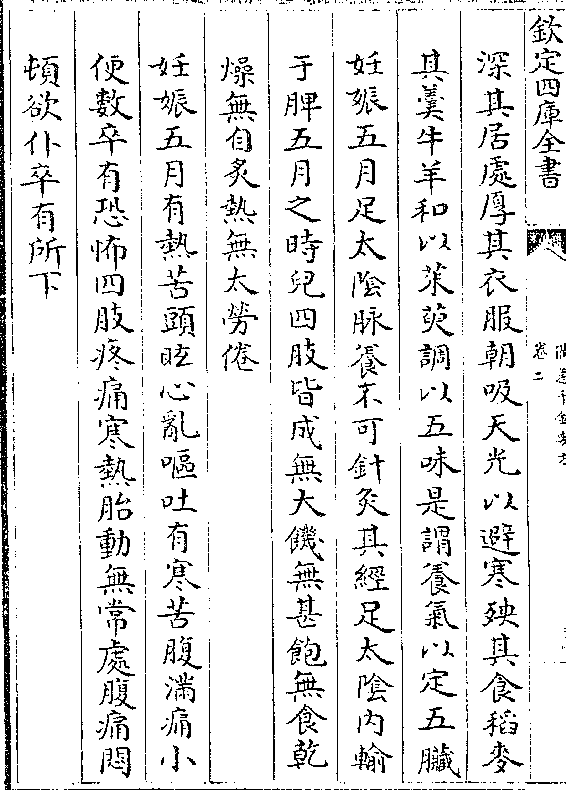 欽定四庫全書
卷二
深其居處厚其衣服朝吸天光以避寒殃其食稻麥
其羹牛羊和以茱萸調以五味是謂養氣以定五臟
妊娠五月足太陰脉養不可針灸其經足太陰内輸
于脾五月之時兒四肢皆成無大饑無甚飽無食乾
燥無自炙熱無太勞倦
妊娠五月有熱苦頭眩心亂嘔吐有寒苦腹滿痛小
便數卒有恐怖四肢疼痛寒熱胎動無常處腹痛悶
頓欲仆卒有所下